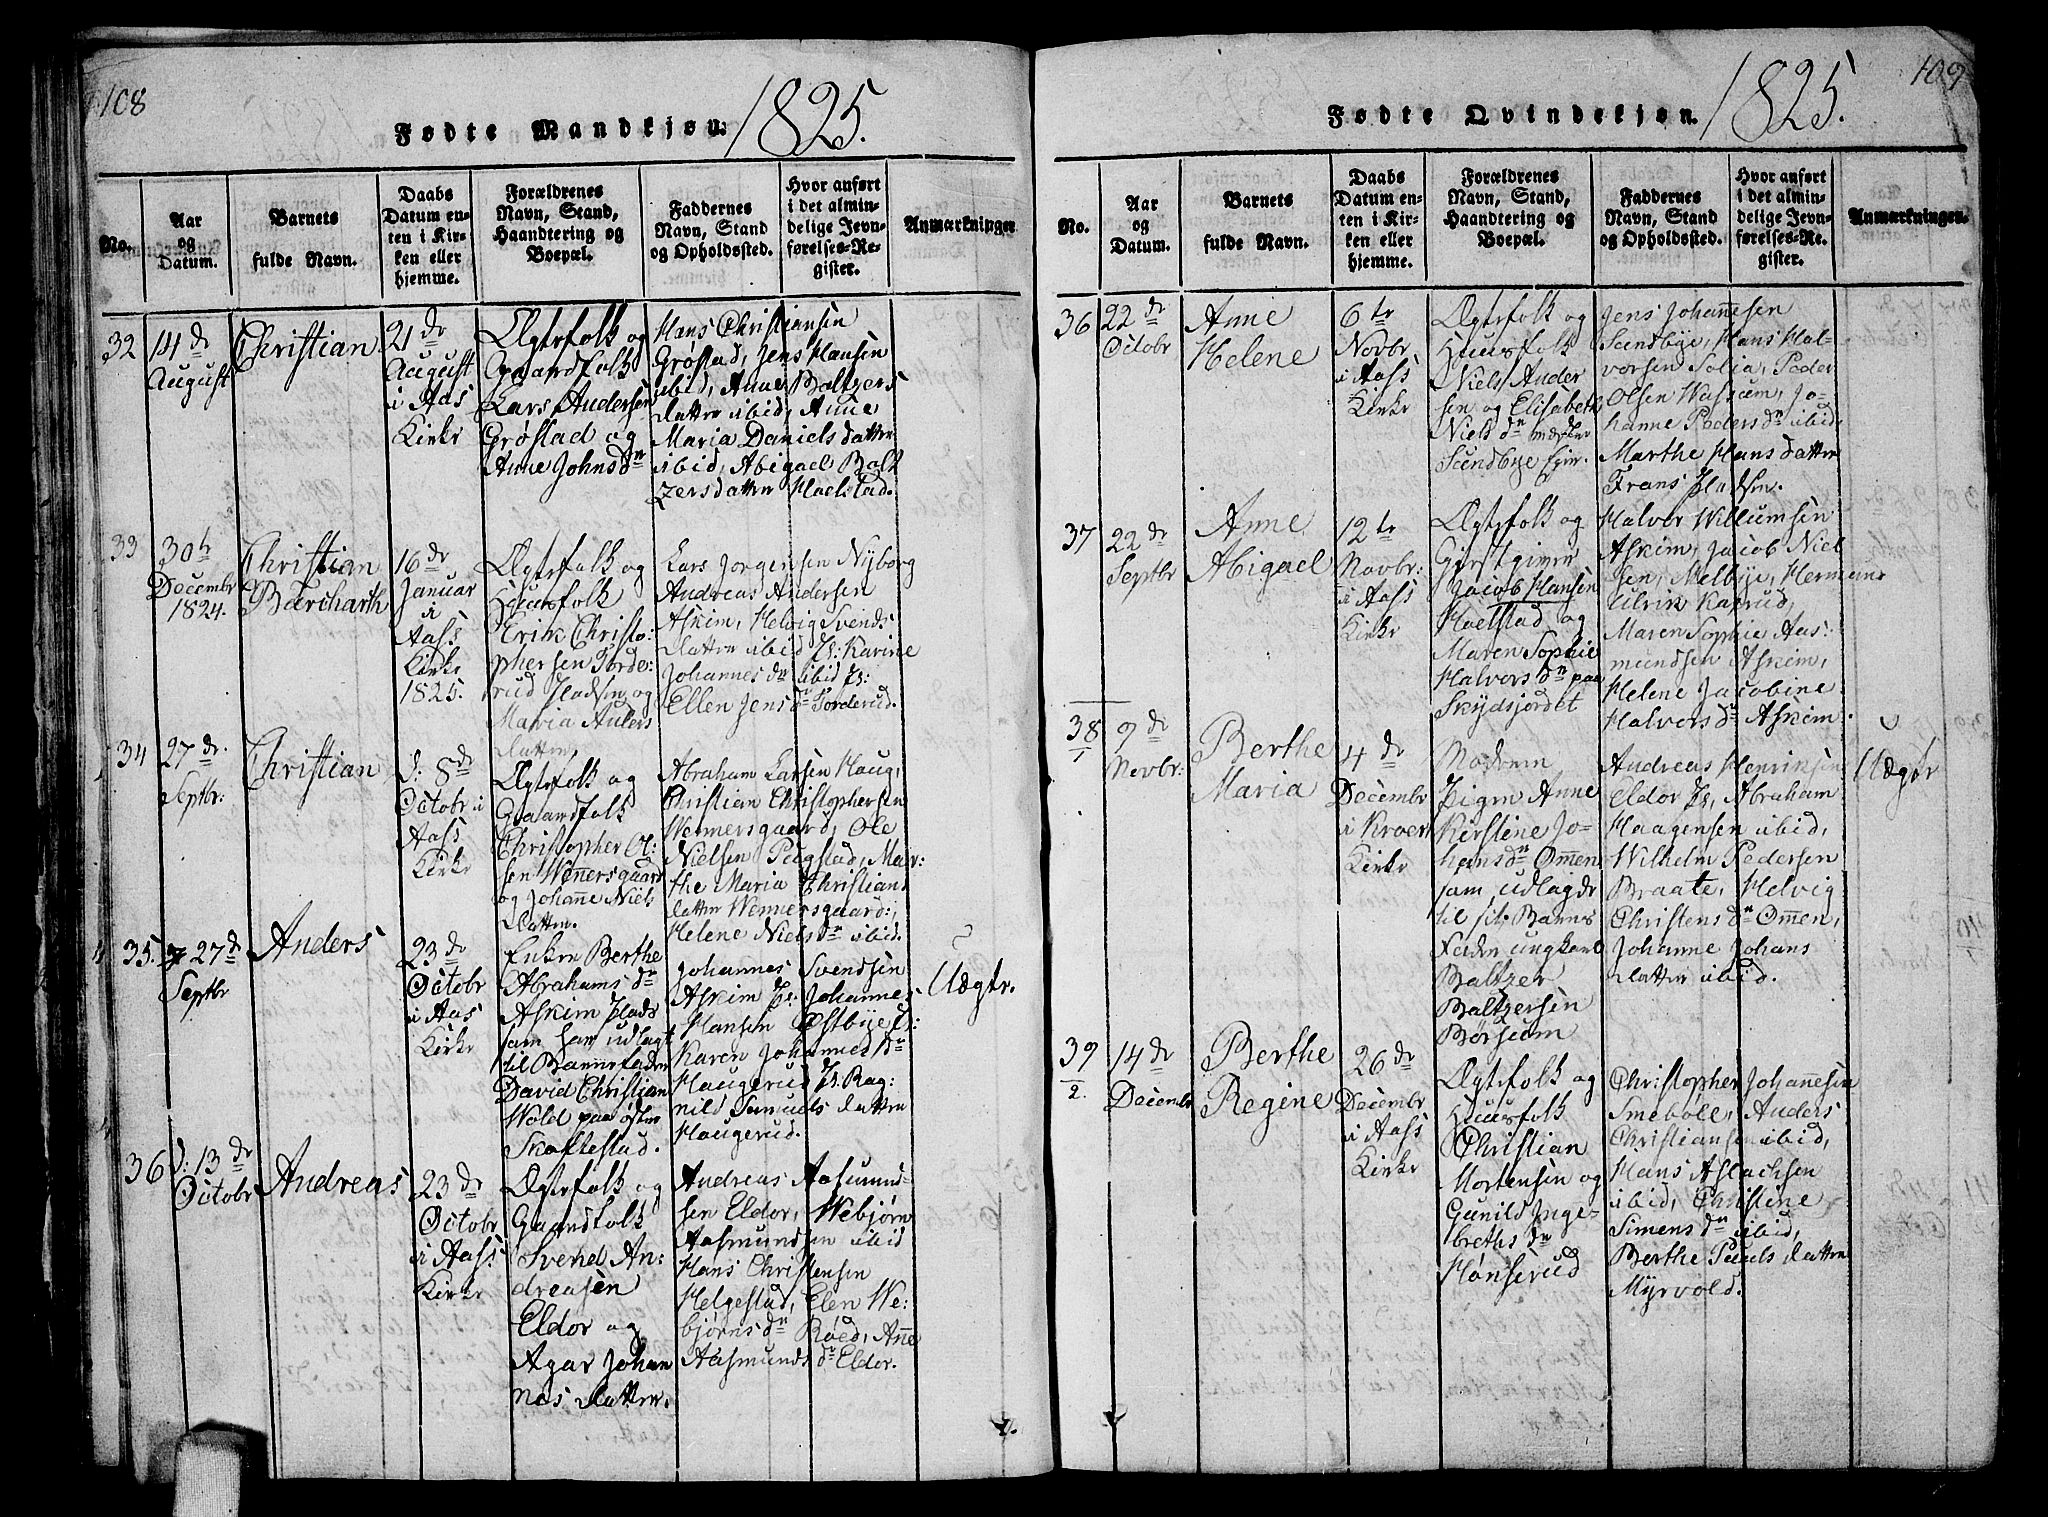 108
Fødte Mandkjøn.
1825.
No.
Aar
og
Datum.
Barnets
fulde Navn.
Daabs
Datum en-
ten i Kir-
ken eller
hjemme.
Forældrenes
Navn, Stand,
Haandtering og
Boepæl.
Faddernes
Navn, Stand
og Opholdssted.
Hvor anført
i det almin-
delige Jevn-
førelses-Re-
gister.
Anmærkninger
32
14 de
August
Christian
21 de
August
i Aas
Kirke
Ægtefolk og
Gaardfolk
Lars Andersen
Grøstad og
Anne Johns dn
Hans Christiansen
Grøstad, Jens Hansen
ibid, Anne Baltzers
datter ibid, Anne
Maria Daniels datter
ibid, Abigael Balt
zersdatter Holstad.
33
30te
Decembr
1824.
Christian
Burcharth
16 de
Januar
i
Aass
Kirke
1825.
Ægtefolk og
Huusfolk
Erik Christo:
phersen Torde:
rud Pladsen og
Maria Anders
datter
Lars Jorgensen Nyborg
Andreas Andersen
Askim, Helvig Svends
datter ibid P: Karine
Johannes dn ibid P:
Ellen Jens dn Torderud.
34
27 de
Septbr:
Christian
d: 8de
Octobr i
Aass
Kirke
Ægtefolk og
Gaardfolk
Christopher Ol:
sen Wennersgaard
og Johanne Niels
datter
Abraham Larsen Haug,
Christian Christophersen
Wennersgaard, Ole
Nielsen Pugstad, Mar:
the Maria Christians
datter Wennersgaard,
Helene Niels dn ibid.
35.
27 de
Septbr
Anders
23 de
Octobr
i Aas
Kirke
Enken Berthe
Abrahams dn
Askim Plads
som har udlagt
til Barnefader
David Christian
Wold paa østre
Skoftestad.
Johannes Svendsen
Askim P: Johannes
Hansen Østbye P:
Karen Johannes dn
Haugerud P: Rag:
nild Samuels datter
Haugerud.
Uægte.
36
d: 13 de
Octobr
Andreas
23 de
Octobr
i Aass
Kirke
Ægtefolk og
Gaardfolk
Svend An-
dreasen
Eldor og
Agar Johan
nes datter.
Andreas Aasmund-
sen Eldor, Webjørn
Aasmundsen ibid
Hans Christensen
Helgestad, Elen We:
bjørns dn Røed, Anne
Aasmunds dn Eldor.
109
Fødte Qvindekjøn.
1825.
No.
Aar
og
Datum.
Barnets
fulde Navn.
Daabs
Datum en-
ten i Kir-
ken eller
hjemme.
Forældrenes
Navn, Stand,
Haandtering og
Boepæl.
Faddernes
Navn, Stand
og Opholdssted.
Hvor anført
i det almin-
delige Jevn-
førelses-Re-
gister.
Anmærkninger.
36
22 de
Octobr
Anne
Helene
6 te
Novbr
i Aass
Kirke
Ægtefolk og
Huusfolk
Niels Ander
sen og Elisabeth
Niels dn
Sundbye Eier.
Jens Johannesen
Sundbye, Hans Hal-
vorsen Solia, Peder
Olsen Wassum, Jo-
hanne Peders dn ibid,
Marthe Hans datter
Frans Pladsen.
37
22 de
Septbr
Anne
Abigael
12 te
Novbr:
i Aass
Kirke
Ægtefolk og
Giestgiver
Jacob Hansen
Holstad og
Maren Sophie
Halvors dn paa
Skydsjordet
Halvor Willumsen
Askim, Jacob Niel
sen, Melbye, Herman
Ulrik Kaxrud,
Maren Sophie Aas:
mundsen Askim,
Helene Jacobine
Halvors dn Askim.
38
1
9 de
Novbr:
Berthe
Maria
4 de
Decembr
i Kroer
Kirke
Moderen
Pigen Anne
Kirstine Jo-
hans dn Ommen
som udlagde
til sit Barnes
Fader ungkarl
Baltzer
Baltzersen
Børsum
Andreas Henriksen
Eldor P:, Abraham
Haagensen ibid,
Wilhelm Pedersen
Braate, Helvig
Christens dn Ommen,
Johanne Johans
datter ibid.
Uægte
39
2.
14 de
Decembr
Berthe
Regine
26 de
Decembr
i Aass
Kirke
Ægtefolk og
Huusfolk
Christian
Mortensen og
Gunild Inge-
breths dn
Hønserud
Christopher Johannesen
Smebøle, Anders
Christiansen ibid,
Hans Aslachsen
ibid, Christine
Simens dn ibid,
Berthe Pouls datter
Myrvold.